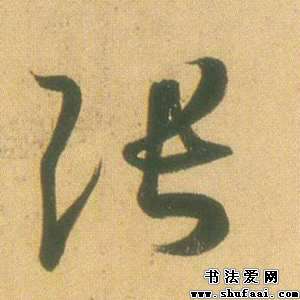 张
书法爱网
www.shufaai.com